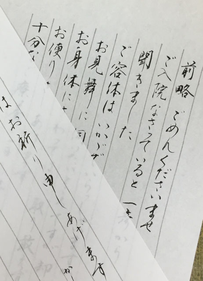 前略 ごめんくださいませ
ご入院なさっていると
聞きました
ご容体はいかが
お見舞に
お身体に
お便り
十分
お祈り申しあげます